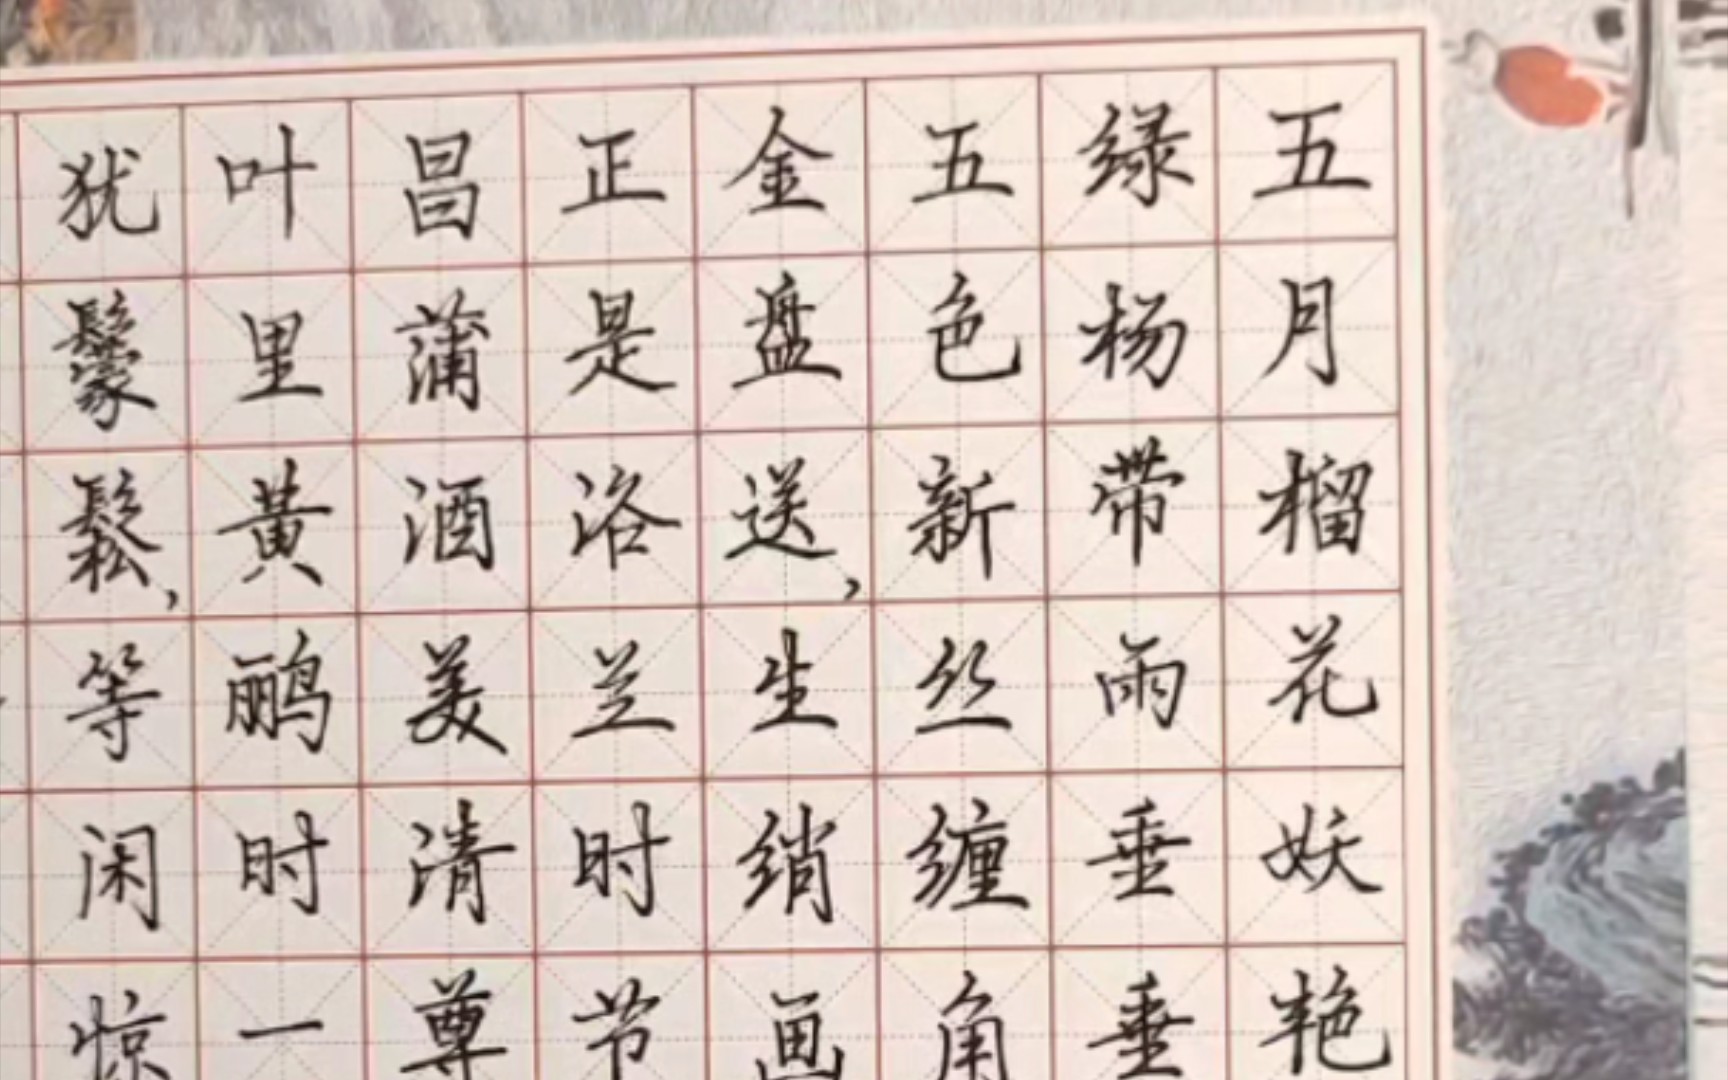 五月榴花妖艳
绿杨带雨垂垂
五色新丝缠角
金盘送，生绡画
正是洛兰时节
昌蒲酒美清尊
叶里黄鹂时一
犹鬆鬆，等闲惊